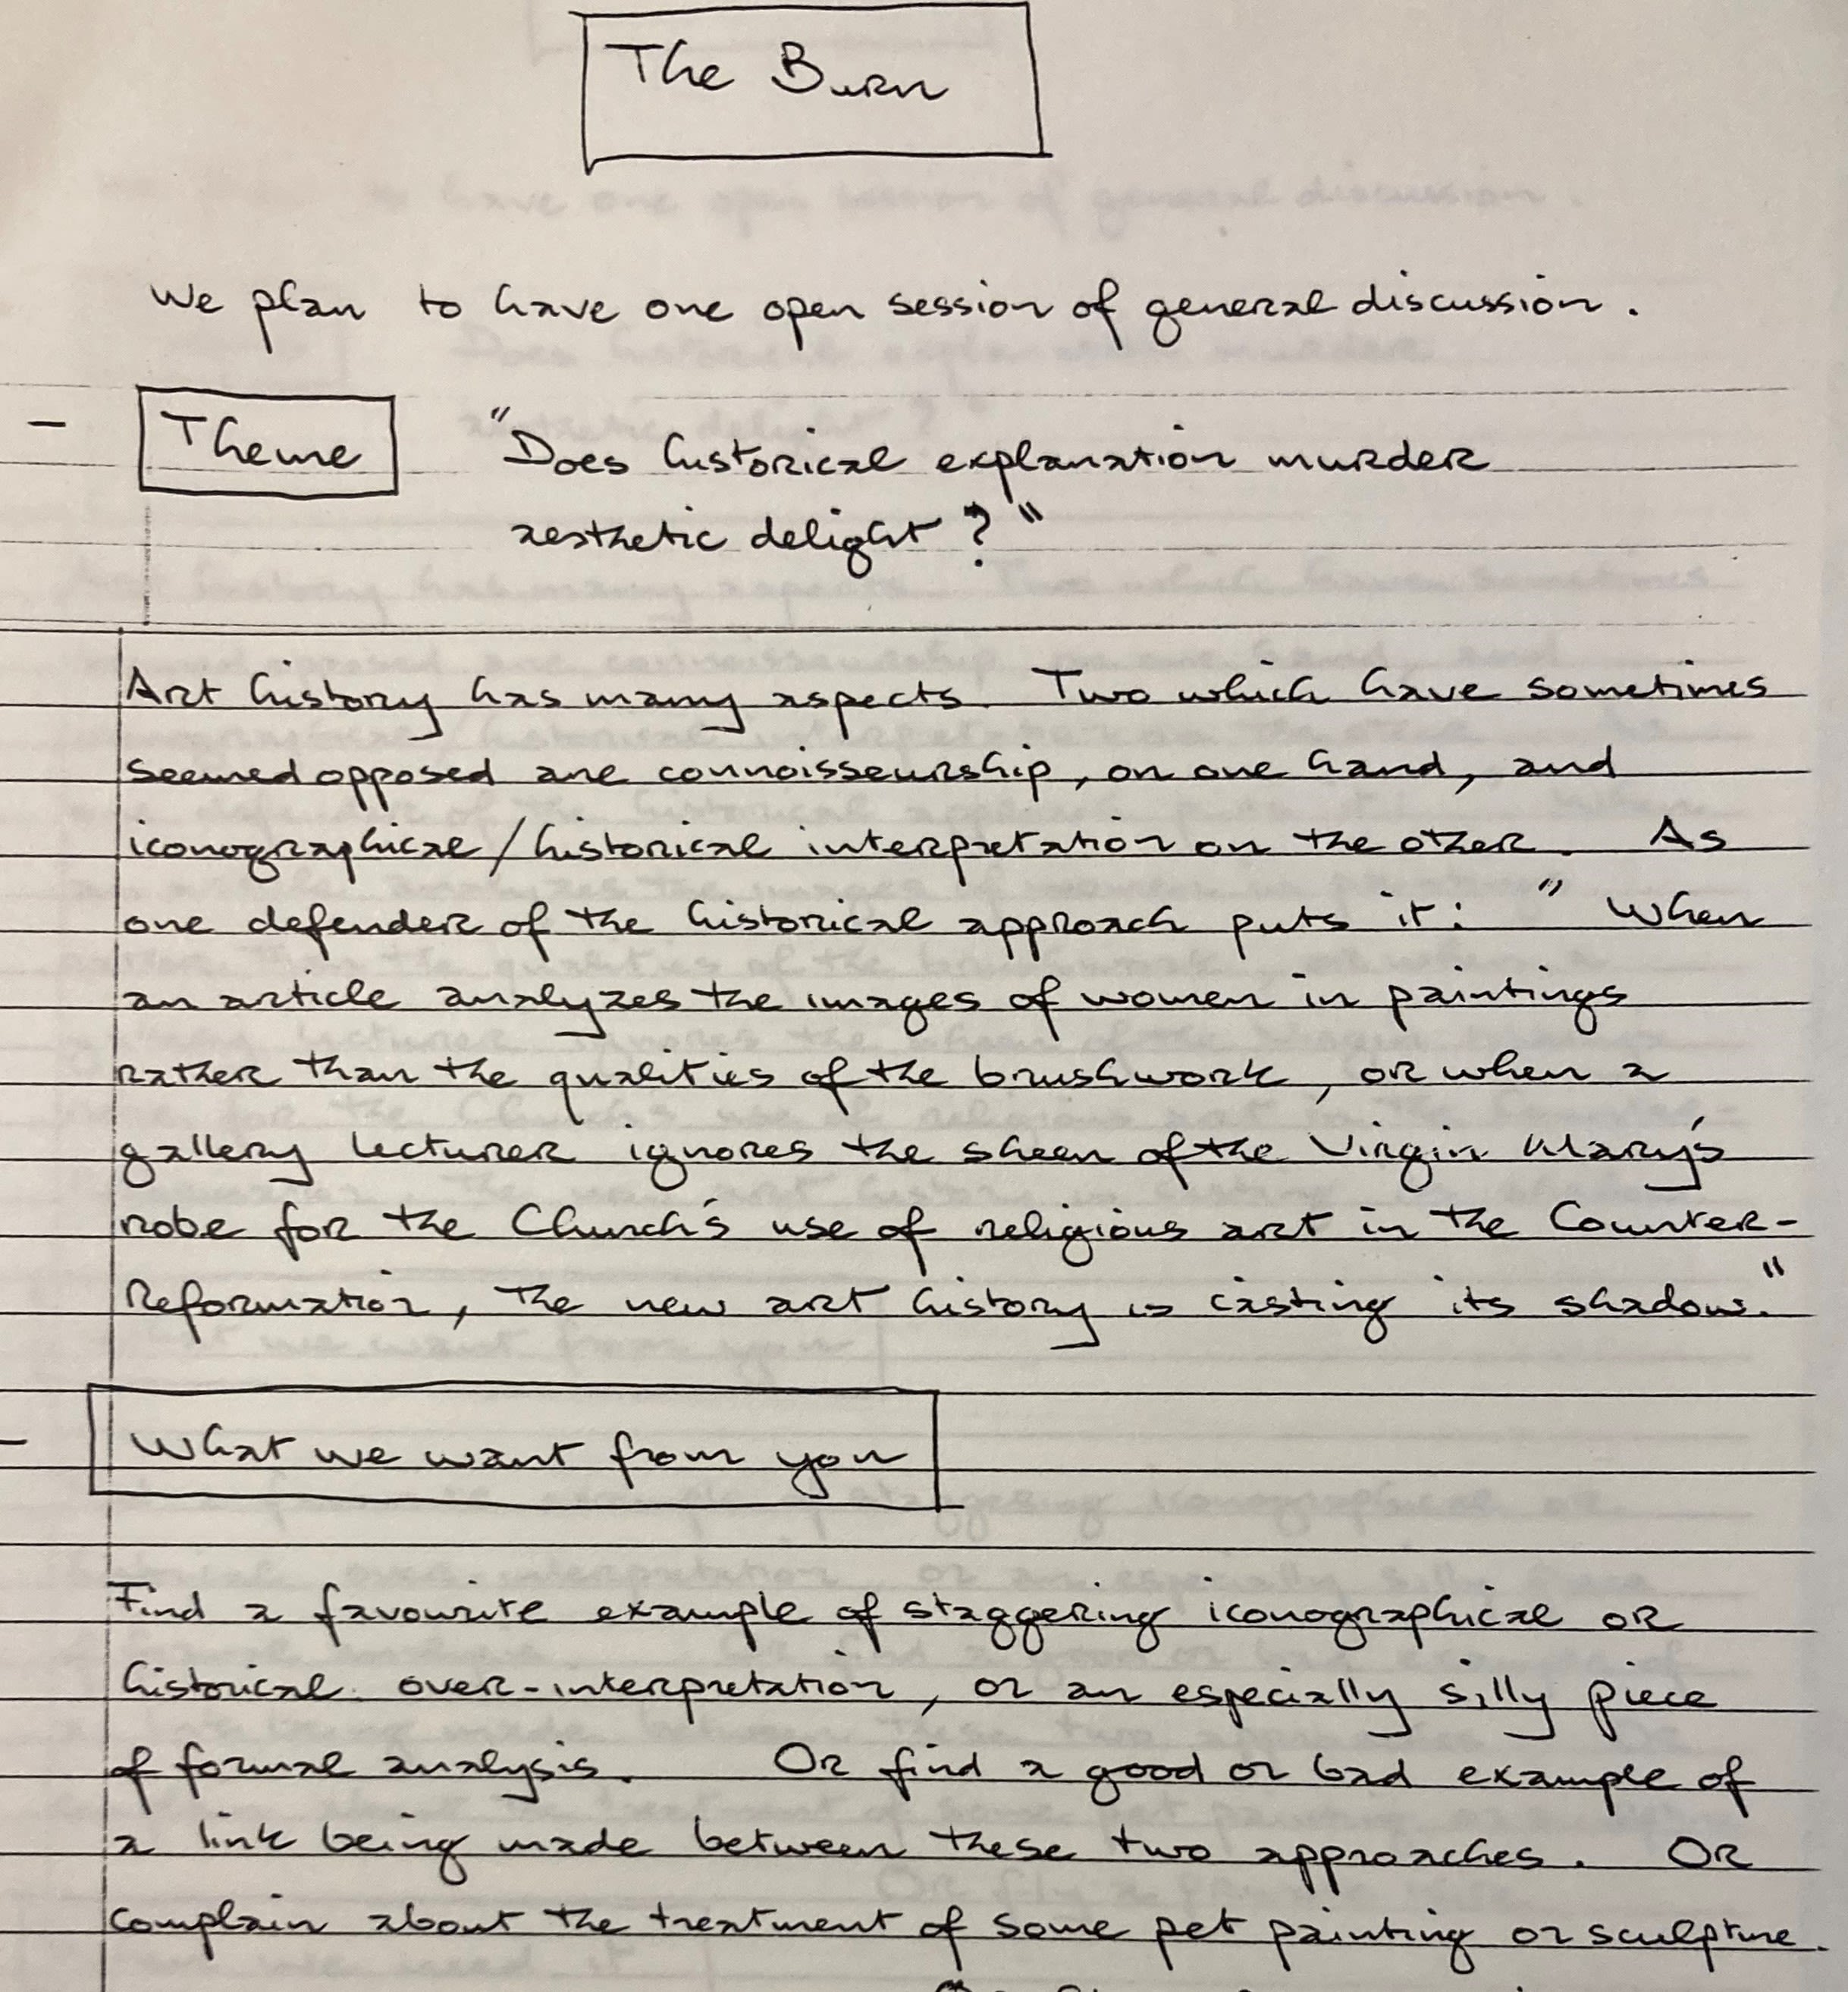 The Burn
We plan to have one open session of general discussion.
- Theme "Does historical explanation murder
aesthetic delight?"
Art history has many aspects. Two which have sometimes
seemed opposed are connoisseurship, on one hand, and
iconographical/historical interpretation on the other. As
one defender of the historical approach puts it: "When
an article analyzes the images of women in paintings
rather than the qualities of the brushwork, or when a
gallery lecturer ignores the sheen of the Virgin Mary's
robe for the Church's use of religious art in the Counter-
Reformation, the new art history is casting its shadow."
- What we want from you
Find a favourite example of staggering iconographical or
historical over-interpretation, or an especially silly piece
of formal analysis. Or find a good or bad example of
a link being made between these two approaches. Or
complain about the treatment of some pet painting or sculpture.